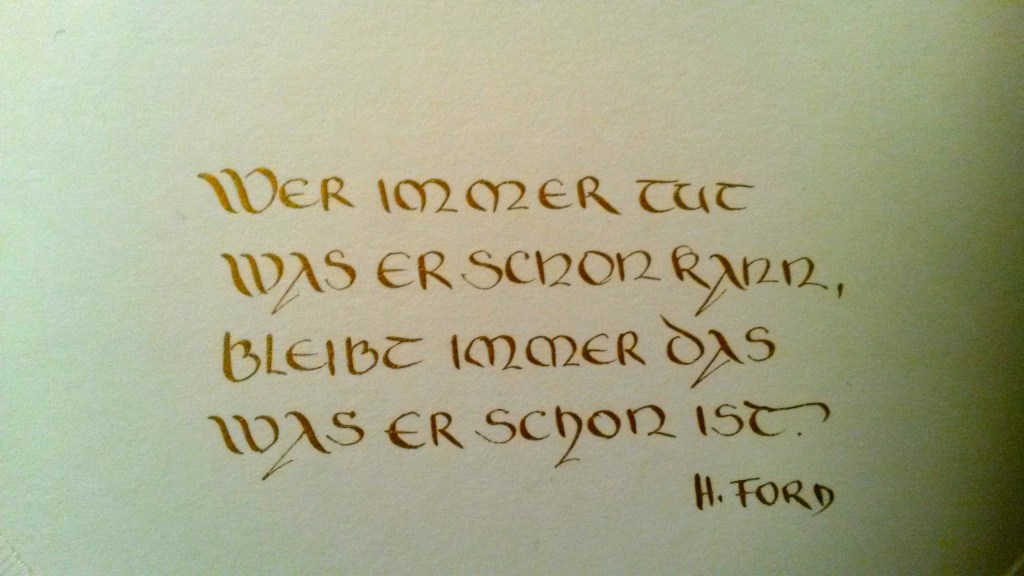 Wer immer tut
was er schon kann,
bleibt immer das
was er schon ist.
H. Ford